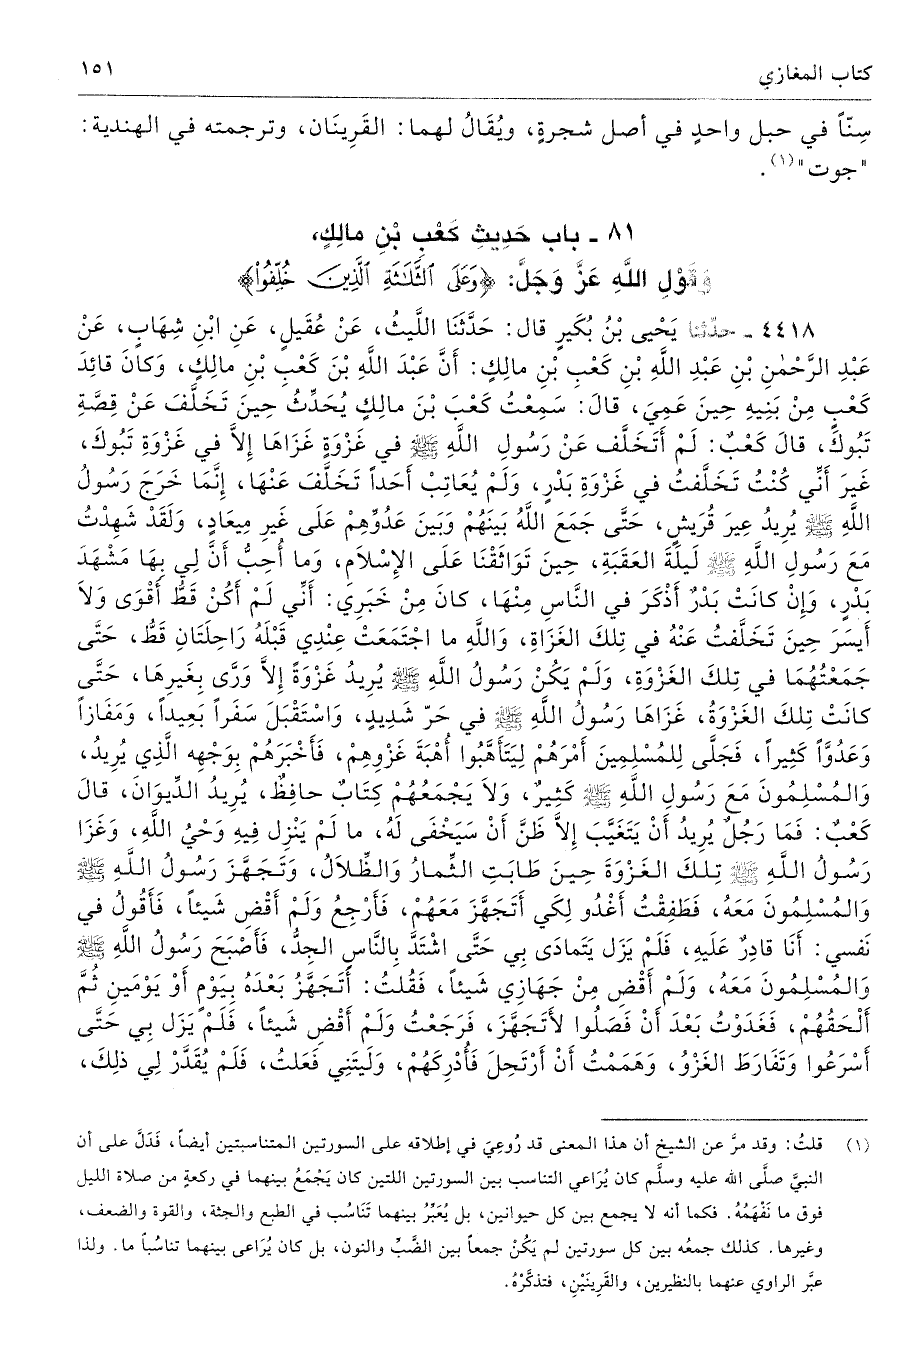 كتاب المغازي ١٥١
سِنّاً في حبل واحدٍ في أصل شجرةٍ، ويُقَالُ لهما: القَرِينَان، وترجمته في الهندية:
"جوت"(١).
٨١ ـ باب حَدِيثِ كَعْبِ بْنِ مالِكٍ،
وَقَوْلِ اللهِ عَزَّ وَجَلَّ: ﴿وَعَلَى الثَّلَاثَةِ الَّذِينَ خُلِّفُوا﴾
٤٤١٨ ـ حدّثنا يَحْيى بْنُ بُكَيرٍ قال: حَدَّثَنَا اللَّيثُ، عَنْ عُقَيلٍ، عَنِ ابْنِ شِهَابٍ، عَنْ
عَبْدِ الرَّحْمٰنِ بْنِ عَبْدِ اللَّهِ بْنِ كَعْبِ بْنِ مالِكٍ: أَنَّ عَبْدَ اللَّهِ بْنَ كَعْبِ بْنِ مالِكٍ، وَكانَ قائِدَ
كَعْبٍ مِنْ بَنِيهِ حِينَ عَمِيَ، قالَ: سَمِعْتُ كَعْبَ بْنَ مالِكٍ يُحَدِّثُ حِينَ تَخَلَّفَ عَنْ قِصَّةِ
تَبُوكَ، قالَ كَعْبٌ: لَمْ أَتَخَلَّف عَنْ رَسُولِ اللَّهِ ﷺ في غَزْوَةٍ غَزَاهَا إِلاَّ في غَزْوَةِ تَبُوكَ،
غَيرَ أَنِّي كُنْتُ تَخَلَّفتُ في غَزْوَةِ بَدْرٍ، وَلَمْ يُعَاتِبْ أَحَداً تَخَلَّفَ عَنْهَا، إِنَّمَا خَرَجَ رَسُولُ
اللَّهِ ﷺ يُرِيدُ عِيرَ قُرَيشٍ، حَتَّى جَمَعَ اللَّهُ بَينَهُمْ وَبَينَ عَدُوِّهِمْ عَلَى غَيرِ مِيعَادٍ، وَلَقَدْ شَهِدْتُ
مَعَ رَسُولِ اللَّهِ ﷺ لَيلَةَ العَقَبَةِ، حِينَ تَوَاثَقْنَا عَلَى الإِسْلَامِ، وَما أُحِبُّ أَنَّ لِي بِهَا مَشْهَدَ
بَدْرٍ، وَإِنْ كانَتْ بَدْرٌ أَذْكَرَ في النَّاسِ مِنْهَا، كانَ مِنْ خَبَرِي: أَنِّي لَمْ أَكُنْ قَطُّ أَقْوَى وَلاَ
أَيسَرَ حِينَ تَخَلَّفتُ عَنْهُ في تِلكَ الغَزَاةِ، وَاللَّهِ ما اجْتَمَعَتْ عِنْدِي قَبْلَهُ رَاحِلَتَانِ قَطُّ، حَتَّى
جَمَعْتُهُمَا في تِلكَ الغَزْوَةِ، وَلَمْ يَكُنْ رَسُولُ اللَّهِ ﷺ يُرِيدُ غَزْوَةً إِلاَّ وَرَّى بِغَيرِهَا، حَتَّى
كانَتْ تِلكَ الغَزْوَةُ، غَزَاهَا رَسُولُ اللَّهِ ﷺ في حَرٍّ شَدِيدٍ، وَاسْتَقْبَلَ سَفَراً بَعِيداً، وَمَفَازاً
وَعَدُوّاً كَثِيراً، فَجَلَّى لِلمُسْلِمِينَ أَمْرَهُمْ لِيَتَأَهَّبُوا أُهْبَةَ غَزْوِهِمْ، فَأَخْبَرَهُمْ بِوَجْهِهِ الَّذِي يُرِيدُ،
وَالمُسْلِمُونَ مَعَ رَسُولِ اللَّهِ ﷺ كَثِيرٌ، وَلاَ يَجْمَعُهُمْ كِتَابٌ حافِظٌ، يُرِيدُ الدِّيوَانَ، قالَ
كَعْبٌ: فَمَا رَجُلٌ يُرِيدُ أَنْ يَتَغَيَّبَ إِلاَّ ظَنَّ أَنْ سَيَخْفَى لَهُ، ما لَمْ يَنْزِل فِيهِ وَحْيُ اللَّهِ، وَغَزَا
رَسُولُ اللَّهِ ﷺ تِلكَ الغَزْوَةَ حِينَ طَابَتِ الثِّمارُ وَالظِّلاَلُ، وَتَجَهَّزَ رَسُولُ اللَّهِ ﷺ
وَالمُسْلِمُونَ مَعَهُ، فَطَفِقْتُ أَغْدُو لِكَي أَتَجَهَّزَ مَعَهُمْ، فَأَرْجِعُ وَلَمْ أَقْضِ شَيئاً، فَأَقُولُ في
نَفسِي: أَنَا قادِرٌ عَلَيهِ، فَلَمْ يَزَل يَتَمادَى بِي حَتَّى اشْتَدَّ بِالنَّاسِ الجِدُّ، فَأَصْبَحَ رَسُولُ اللَّهِ ﷺ
وَالمُسْلِمُونَ مَعَهُ، وَلَمْ أَقْضِ مِنْ جَهَازِي شَيئاً، فَقُلتُ: أَتَجَهَّزُ بَعْدَهُ بِيَوْمٍ أَوْ يَوْمَينِ ثُمَّ
أَلحَقُهُمْ، فَغَدَوْتُ بَعْدَ أَنْ فَصَلُوا لأَتَجَهَّزَ، فَرَجَعْتُ وَلَمْ أَقْضِ شَيئاً، فَلَمْ يَزَل بِي حَتَّى
أَسْرَعُوا وَتَفَارَطَ الغَزْوُ، وَهَمَمْتُ أَنْ أَرْتَحِلَ فَأُدْرِكَهُمْ، وَلَيتَنِي فَعَلتُ، فَلَمْ يُقَدَّرْ لِي ذلِكَ،
(١) قلتُ: وقد مرَّ عن الشيخ أن هذا المعنى قد رُوعِيَ في إطلاقه على السورتين المتناسبتين أيضاً، فَدَلَّ على أن
النبيَّ صلَّى الله عليه وسلَّم كان يُرَاعي التناسب بين السورتين اللتين كان يَجْمَعُ بينهما في ركعةٍ من صلاة الليل
فوق ما نَفْهَمُهُ. فكما أنه لا يجمع بين كل حيوانين، بل يُعَبِّرُ بينهما تَنَاسُب في الطبع والجثة، والقوة والضعف،
وغيرها. كذلك جمعُه بين كل سورتين لم يَكُنْ جمعاً بين الضَّبِّ والنون، بل كان يُرَاعى بينهما تناسُباً ما. ولذا
عبَّر الراوي عنهما بالنظيرين، والقَرِينَيْنِ، فتذكَّرْهُ.